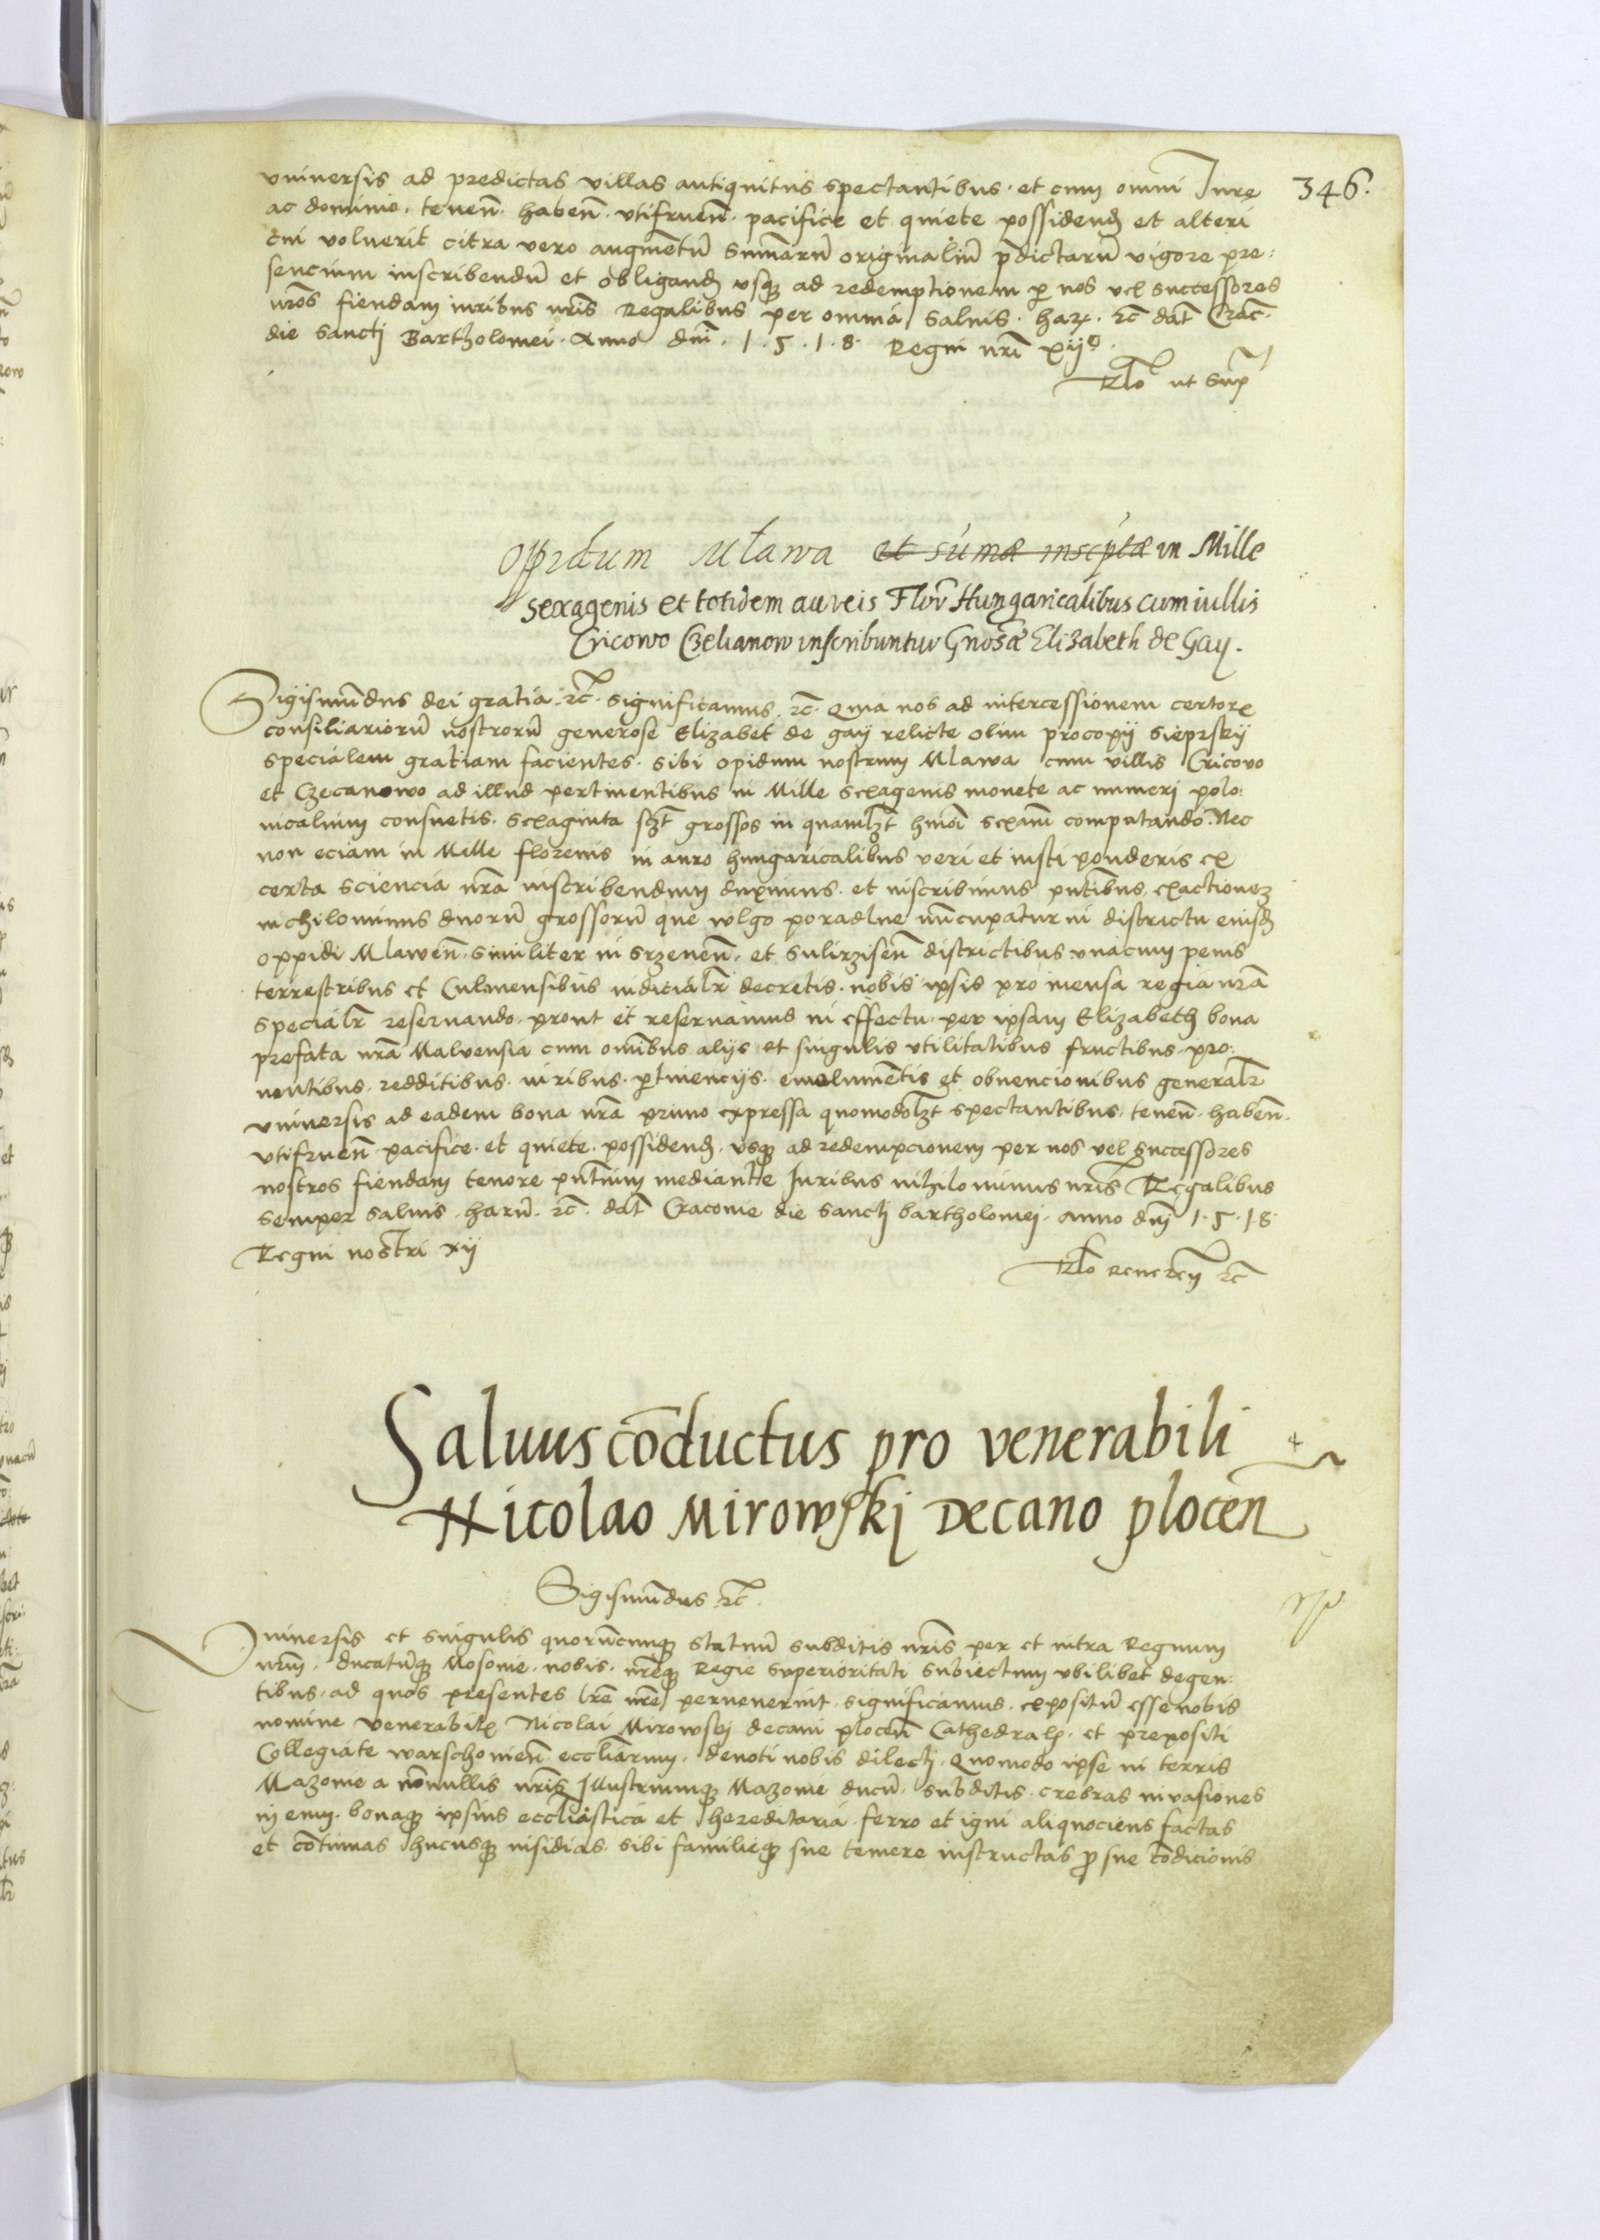 346.
vniversis ad predictas villas antiquitus spectantibus · et cum omni Jure
ac dominio · teneñ · habeñ · vtifrueñ · pacifice et quiete possidend et alteri
cui voluerit citra vero augmentũ sum̃arũ originaliũ p̃dictarũ vigore pre:
sencium inscribendũ et obligand usq ad redemptionem p nos vel successores
nr̃os fiendam iuribus nr̃is Regalibus per omnia salvis · har · rc̃ dat̃ Crac̃ ·
die sanctj Bartholomei · Anno dñi · 1 · 5 · 1 · 8 · Regni nr̃i xijº ·
Rl̃o ut sup̃
Oppidum Mlawa et sumæ inscptæ in Mille
sexagenis et totidem aureis Flor̃ Hungaricalibus cum iullis
Cricowo Czelianow inscribuntur Gnosæ Elizabeth de Gay.
Sigismũdus dei gratia · rc̃ · significamus · rc̃ · Quia nos ad intercessionem certor
consiliariorũ nostrorũ generose Elizabet de gay relicte olim procopij sieprskij
specialem gratiam facientes · sibi opidum nostrum Mlawa cum villis Cricovo
et Czecanowo ad illud pertinentibus in Mille sexagenis monete ac numerj polo:
nicalium consuetis · sexaginta sz̃t grossos in quamlz̃t hmõi sexam̃ computando · Nec
non eciam in Mille florenis in auro hungaricalibus veri et iusti ponderis ex
certa sciencia nr̃a inscribendum duximus · et inscribimus pñtibus · exactionez
nichilominus duorũ grossorũ que wlgo poradlne nũcupatur in districtu eiusd
oppidi Mlaweñ · similiter in srzeneñ · et sulirziseñ districtibus vnacum penis
terrestribus et Culmensibus iudicialr̃ decretis · nobis ipsis pro mensa regia nr̃a
specialr̃ reservando · prout et reservamus in effectu · per ipsam Elizabeth bona
prefata nr̃a Malvensia cum om̃ibus alijs et singulis vtilitatibus fructibus · pro:
ventibus · redditibus · iuribus · ptinencijs · emolumẽtis et obvencionibus generalr̃
vniversis ad eadem bona nr̃a primo expressa quomodolz̃t spectantibus · teneñ · habeñ ·
vtifrueñ pacifice · et quiete · possidend · usq ad redempcionem per nos vel successores
nostros fiendam tenore pñtium mediante Juribus nihilominus nr̃is Regalibus
semper salvis · harũ · rc̃ · dat̃ Cracovie die sanctj bartholomej · Anno dñj 1 · 5 · 18 ·
Regni nostri xij
Rl̃o Reverẽ rc̃
Saluus cõductus pro venerabili
Nicolao Mirowskj Decano ploceñ
Sigismũdus rc̃ ·
Vniversis et singulis quorũcunq statuũ subditis nr̃is per et intra Regnum
nr̃m · ducatũq Mosovie · nobis · nr̃eq Regie superioritati subiectum vbilibet degen:
tibus · ad quos presentes lr̃e nr̃e pervenerint · significamus · expositũ esse nobis
nomine Venerabil Nicolai Mirowskj decani ploceñ Cathedral · et prepositi
Collegiate warschovieñ eccl̃iarum · devoti nobis dilectj · Quomodo ipse in terris
Mazovie a nõnullis nr̃is Jllustriumq Mazovie ducũ · subditis · crebras invasiones
in eum · bonaq ipsius eccl̃iastica et hereditaria · ferro et igni aliquociens factas
et cõtinuas hucusq insidias · sibi familieq sue temere instructas p sue cõdicionis